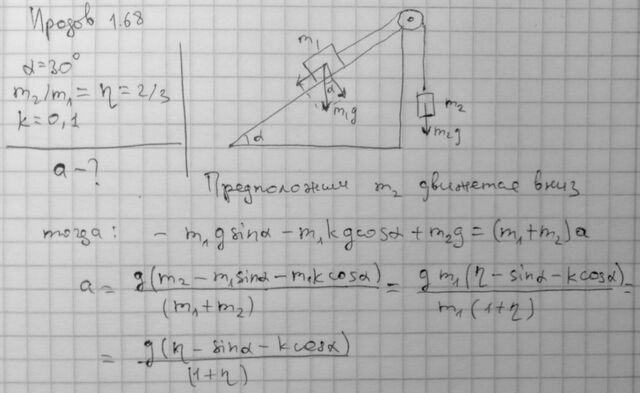 Иродов 1.68
α=30°
m₂/m₁ = η = 2/3
k=0,1
a-?
m₁
α
m₁g
α
m₂
m₂g
Предположим m₂ движется вниз
тогда: - m₁g sinα - m₁kg cosα + m₂g = (m₁+m₂)a
a = g(m₂ - m₁sinα - m₁k cosα)/(m₁+m₂) = g m₁(η - sinα - k cosα)/m₁(1+η) =
= g(η - sinα - k cosα)/(1+η)